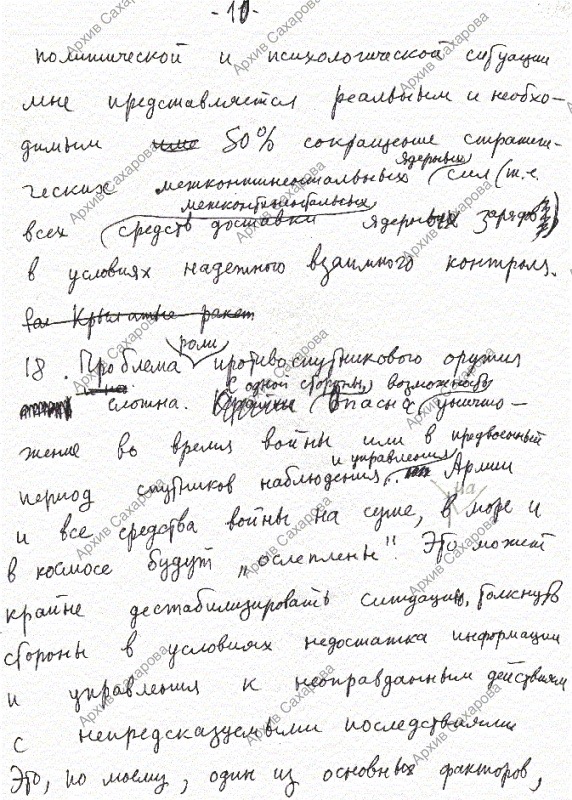 - 10 -
политической и психологической ситуации
мне представляется реальным и необхо-
димым 50% сокращение страте-
гических межконтинентальных ядерных сил (т.е.
всех межконтинентальных средств доставки ядерных зарядов)
в условиях надежного взаимного контроля.
Крылатые ракет
18. Проблема роли противоспутникового оружия
сложна. С одной стороны, опасна возможность уничто-
жение во время войны или в предвоенный
период спутников наблюдения и управления. Армии
и все средства войны на суше, в море и
в космосе будут „ослеплены". Это может
крайне дестабилизировать ситуацию, толкнуть
стороны в условиях недостатка информации
и управления к неоправданным действиям
с непредсказуемыми последствиями
Это, по моему, один из основных факторов,
Архив Сахарова